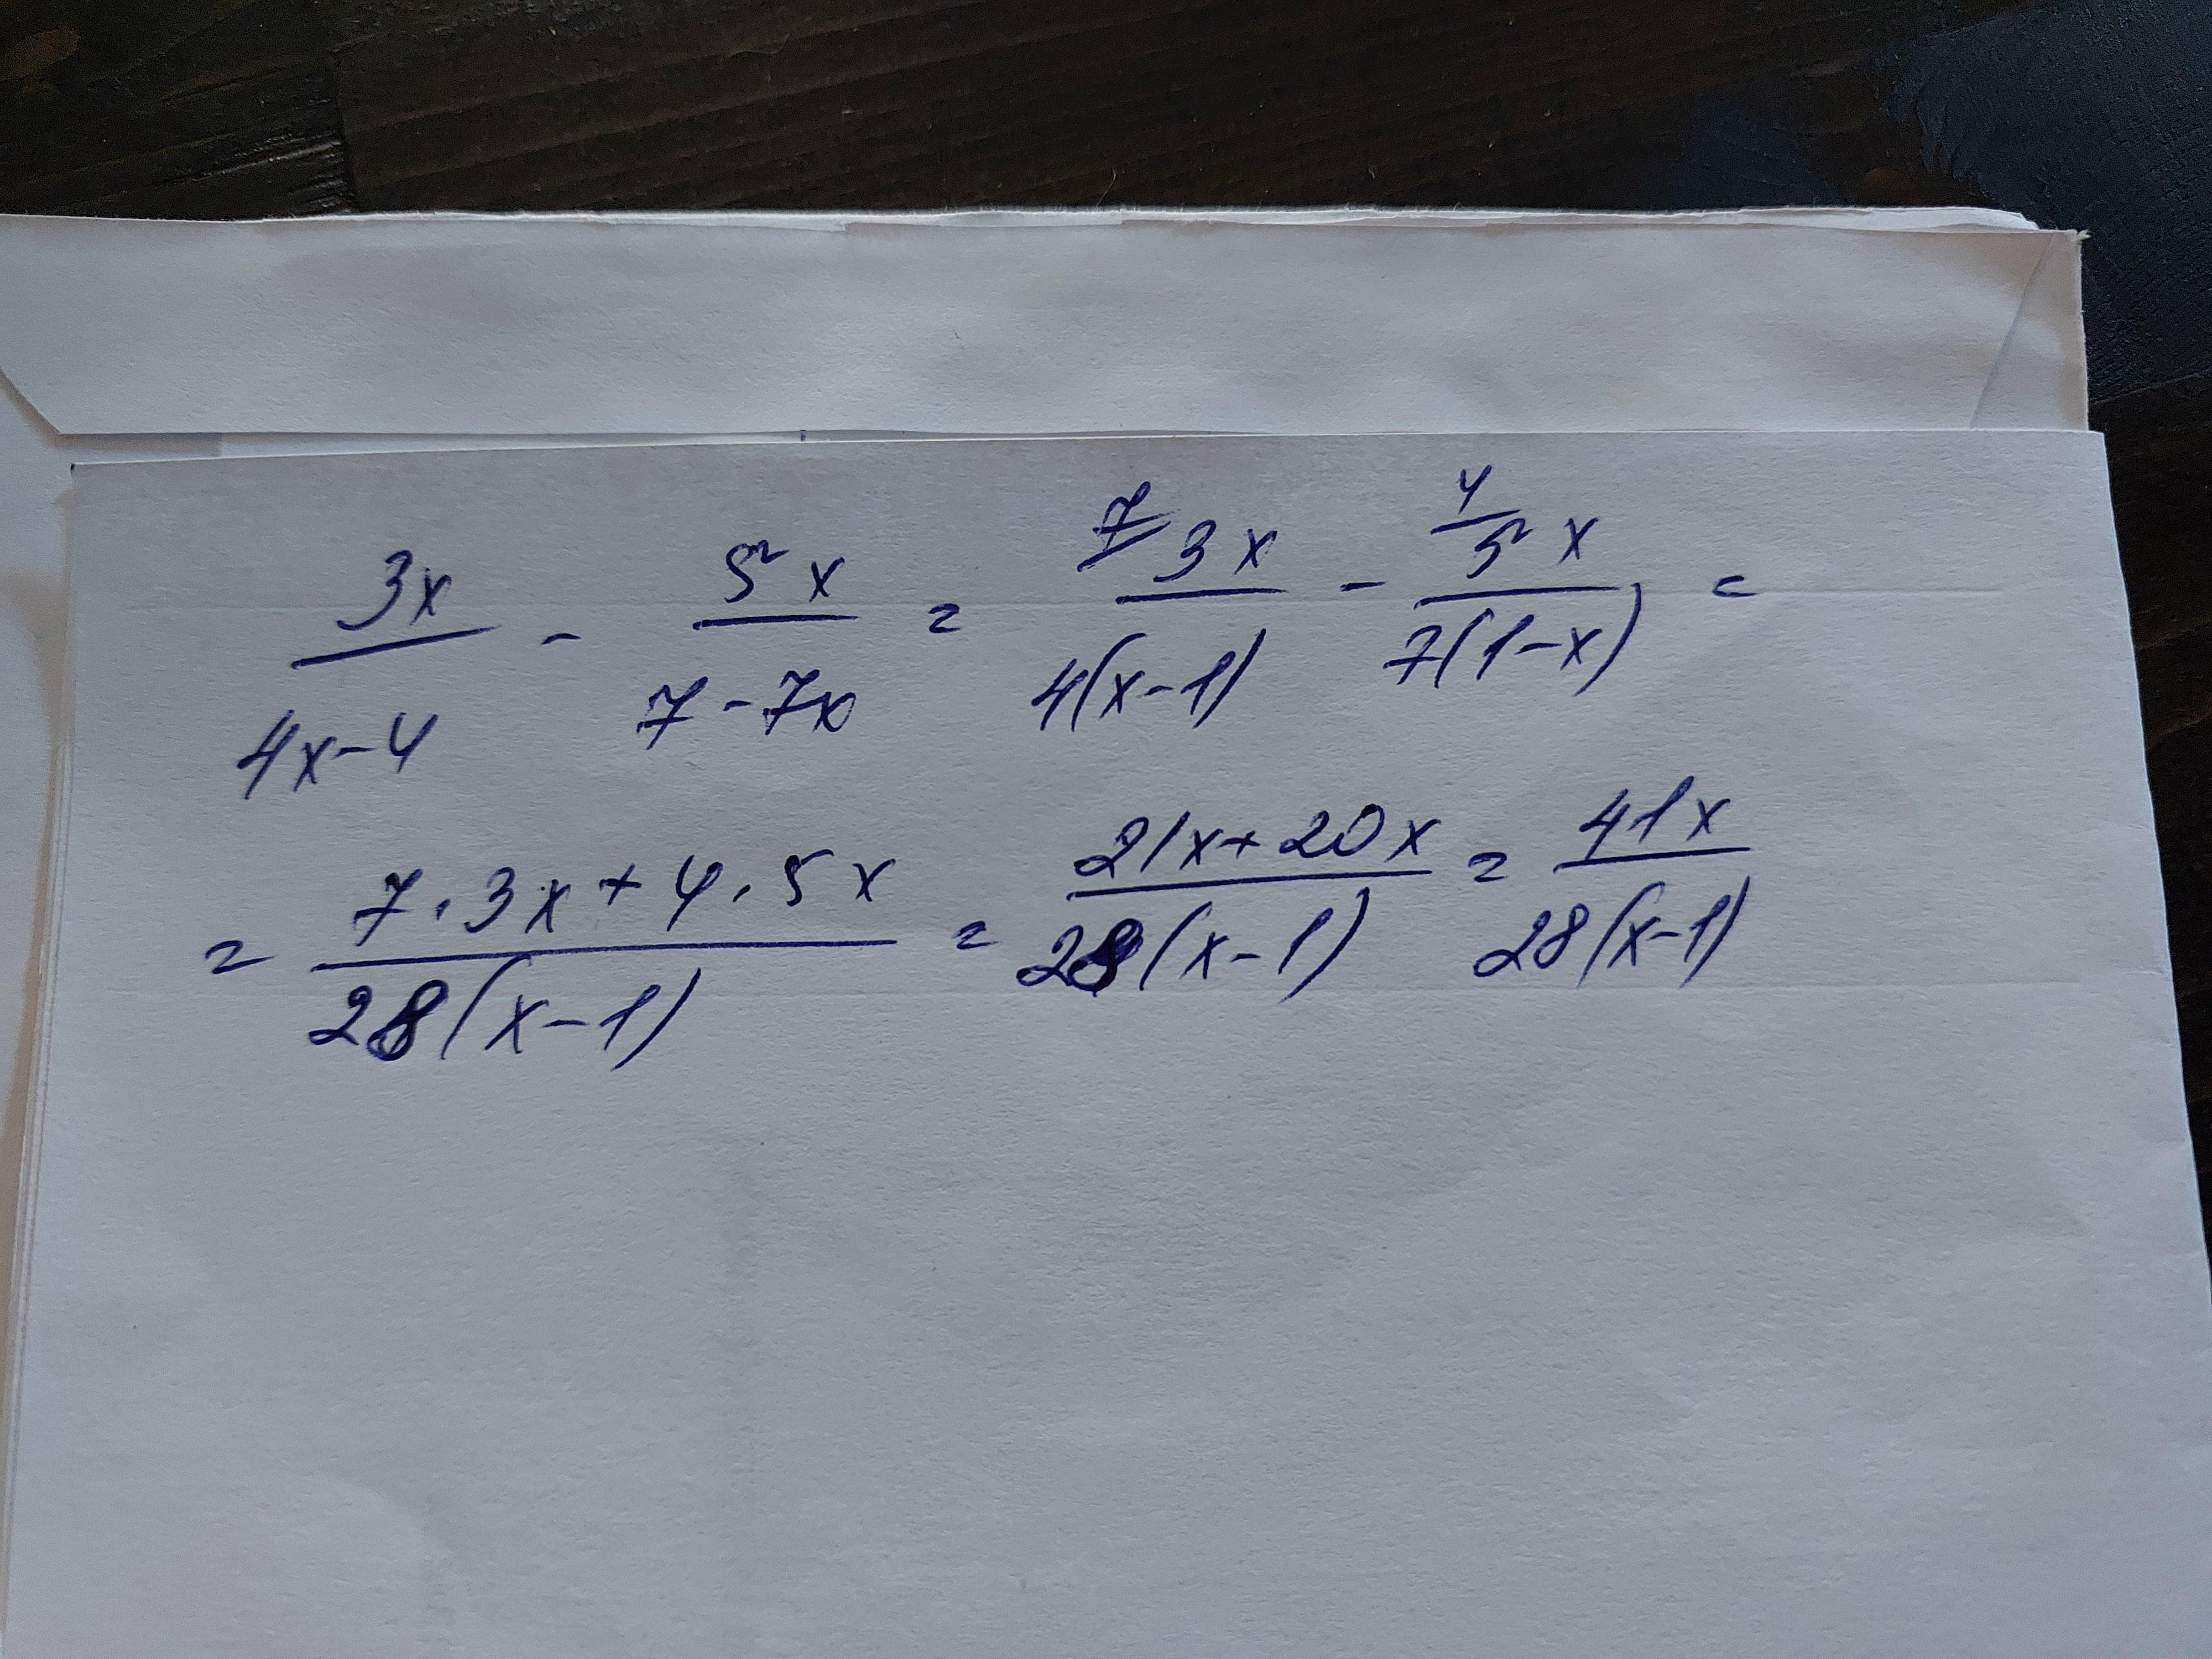 3x/(4x-4) - 5x/(7-7x) = 7/3x/(4(x-1)) - 4/5x/(7(1-x)) =
= (7·3x+4·5x)/(28(x-1)) = (21x+20x)/(28(x-1)) = 41x/(28(x-1))